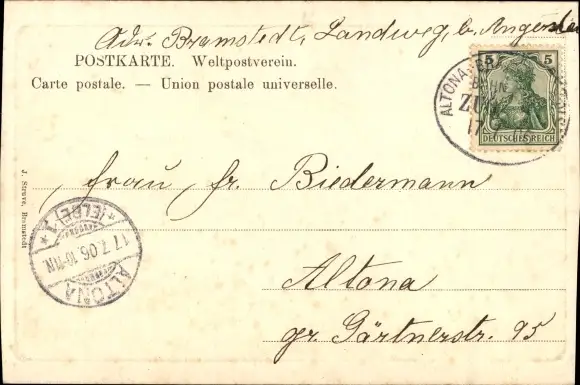 Adr. Bramstedt, Landweg, b. Angerstein
POSTKARTE. Weltpostverein.
Carte postale. — Union postale universelle.
5 5
DEUTSCHES REICH
ALTONA
BAHN
ZUG
17
Frau Fr. Biedermann
Altona
gr. Gärtnerstr. 95
* (ELBE) 1 *
17.7.06.10-11N.
ALTONA
J. Struve, Bramstedt